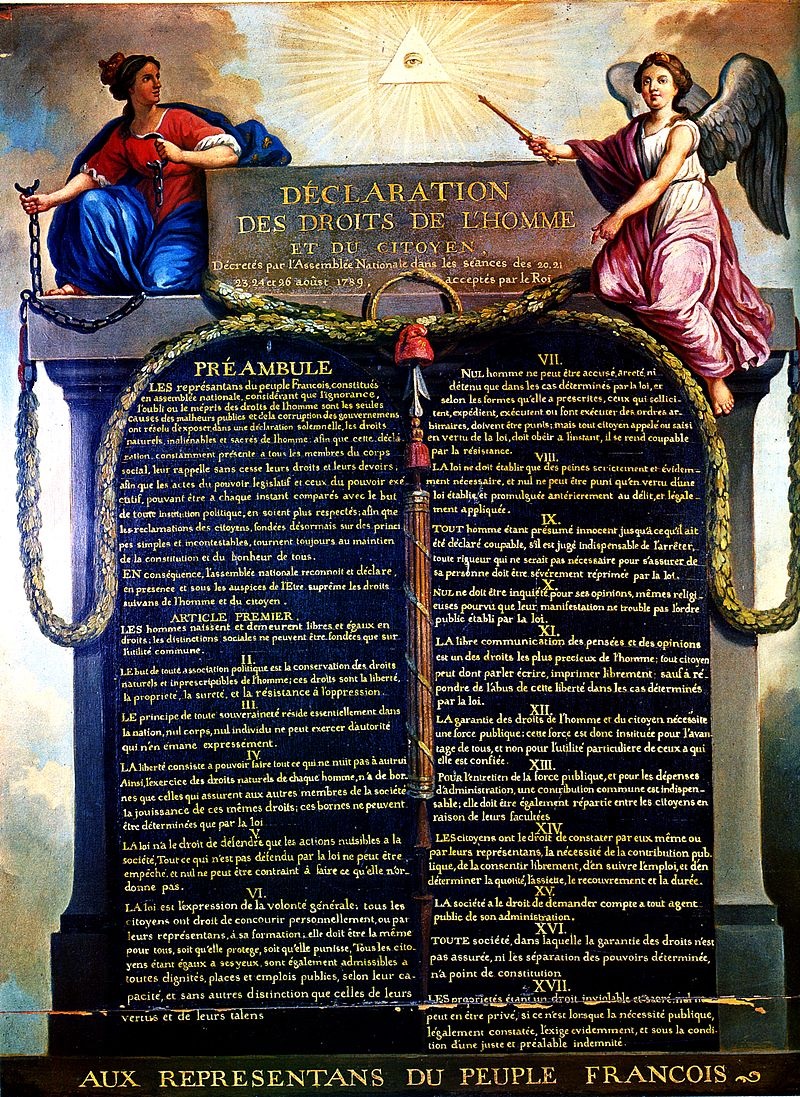 DÉCLARATION
DES DROITS DE L'HOMME
ET DU CITOYEN,
Décretés par l'Assemblée Nationale dans les séances des 20, 21
23, 24 et 26 aoûst 1789, acceptés par le Roi
PRÉAMBULE
LES représantans du peuple Francois, constitués
en assemblée nationale, considérant que l'ignorance,
l'oubli ou le mépris des droits de l'homme sont les seules
causes des malheurs publics et de la corruption des gouvernemens
ont résolu d'exposer, dans une déclaration solemnelle, les droits
naturels, inaliénables et sacrés de l'homme; afin que cette décla-
ration, constamment présente a tous les membres du corps
social, leur rappelle sans cesse leurs droits et leurs devoirs,
afin que les actes du pouvoir legislatif et ceux du pouvoir exé-
cutif, pouvant être a chaque instant comparés avec le but
de toute institution politique, en soient plus respectés; afin que
les reclamations des citoyens, fondées désormais sur des princi
pes simples et incontestables, tournent toujours au maintien
de la constitution et du bonheur de tous.
EN conséquence, l'assemblée nationale reconnoit et déclare,
en presence et sous les auspices de l'Etre suprême les droits
suivans de l'homme et du citoyen.
ARTICLE PREMIER.
LES hommes naissent et demeurent libres et égaux en
droits; les distinctions sociales ne peuvent être fondées que sur
l'utilité commune.
II.
LE but de toute association politique est la conservation des droits
naturels et inprescriptibles de l'homme; ces droits sont la liberté,
la propriete, la sureté, et la résistance à l'oppression.
III.
LE principe de toute souveraineté réside essentiellement dans
la nation, nul corps, nul individu ne peut exercer d'autorité
qui n'en émane expressement.
IV.
LA liberté consiste a pouvoir faire tout ce qui ne nuit pas à autrui
Ainsi, l'exercice des droits naturels de chaque homme, n'a de bor-
nes que celles qui assurent aux autres membres de la société
la jouissance de ces mêmes droits; ces bornes ne peuvent
être déterminées que par la loi
V.
LA loi n'a le droit de défendre que les actions nuisibles a la
société, Tout ce qui n'est pas défendu par la loi ne peut être
empêché, et nul ne peut être contraint à faire ce qu'elle n'or-
donne pas.
VI.
LA loi est l'expression de la volonté générale; tous les
citoyens ont droit de concourir personnellement, ou par
leurs représentans, à sa formation; elle doit être la même
pour tous, soit qu'elle protege, soit qu'elle punisse, Tous les cito-
yens étant égaux a ses yeux, sont également admissibles a
toutes dignités, places et emplois publics, selon leur ca-
pacité, et sans autres distinction que celles de leurs
vertus et de leurs talens
VII.
NUL homme ne peut être accusé, arreté, ni
détenu que dans les cas déterminés par la loi, et
selon les formes qu'elle a prescrites, ceux qui sollici-
tent, expédient, exécutent ou font exécuter des ordres ar-
bitraires, doivent être punis; mais tout citoyen appelé ou saisi
en vertu de la loi, doit obéir a l'instant, il se rend coupable
par la résistance.
VIII.
LA loi ne doit établir que des peines strictement et évidem-
ment nécessaire, et nul ne peut être puni qu'en vertu d'une
loi établie et promulguée antérierement au délit, et légale-
ment appliquée.
IX.
TOUT homme étant présumé innocent jusqu'a ce qu'il ait
été déclaré coupable, s'il est jugé indispensable de l'arrêter,
toute rigueur qui ne serait pas nécessaire pour s'assurer de
sa personne doit être sévèrement réprimée par la loi.
X.
NUL ne doit être inquiété pour ses opinions, mêmes religi-
euses pourvu que leur manifestation ne trouble pas l'ordre
public établi par la loi.
XI.
LA libre communication des pensées et des opinions
est un des droits les plus precieux de l'homme; tout citoyen
peut dont parler écrire, imprimer librement; sauf à ré-
pondre de l'abus de cette liberté dans les cas déterminés
par la loi.
XII.
LA garantie des droits de l'homme et du citoyen nécessite
une force publique; cette force est donc instituée pour l'avan-
tage de tous, et non pour l'utilité particuliere de ceux a qui
elle est confiée.
XIII.
POUR l'entretien de la force publique, et pour les dépenses
d'administration, une contribution commune est indispen-
sable; elle doit être également répartie entre les citoyens en
raison de leurs facultées
XIV.
LES citoyens ont le droit de constater par eux même ou
par leurs représentans, la nécessité de la contribution pub-
lique, de la consentir librement, d'en suivre l'emploi, et d'en
déterminer la quotité, l'assiette, le recouvrement et la durée.
XV.
LA société a le droit de demander compte a tout agent
public de son administration.
XVI.
TOUTE société, dans laquelle la garantie des droits n'est
pas assurée, ni les séparation des pouvoirs déterminée,
n'a point de constitution
XVII.
LES proprietés étant un droit inviolable et sacré, nul ne
peut en être privé, si ce n'est lorsque la nécessité publique,
légalement constatée, l'exige evidemment, et sous la condi-
tion d'une juste et préalable indemnité.
AUX REPRESENTANS DU PEUPLE FRANCOIS